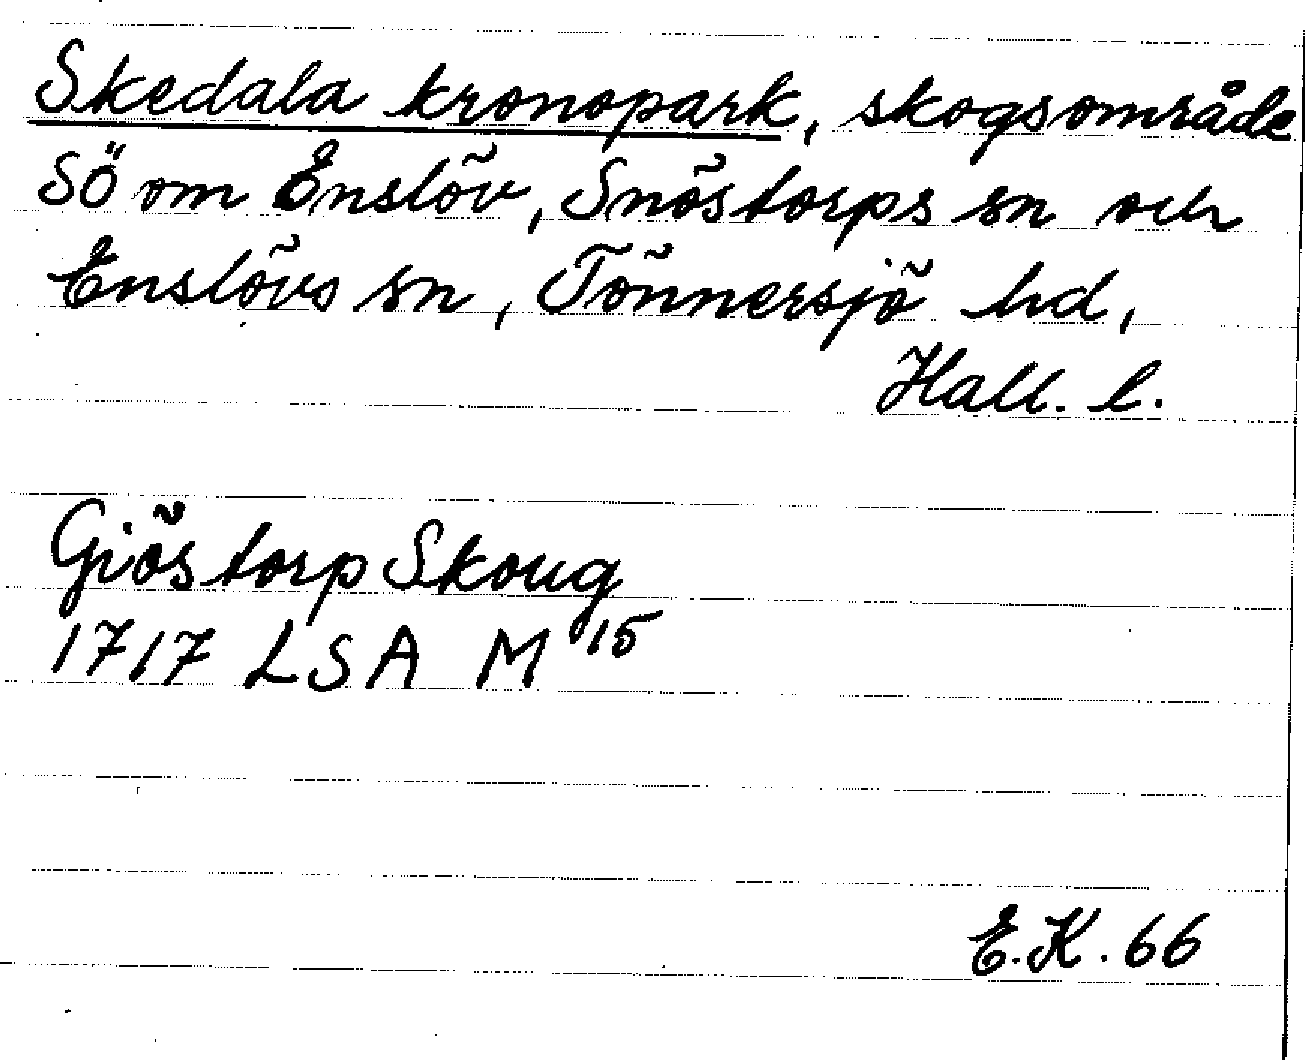 Skedala kronopark, skogsområde
SÖ om Enslöv, Snöstorps sn och
Enslövs sn, Tönnersjö hd,
Hall. l.
Giöstorp Skoug
1717 LSA M 15
E.K. 66